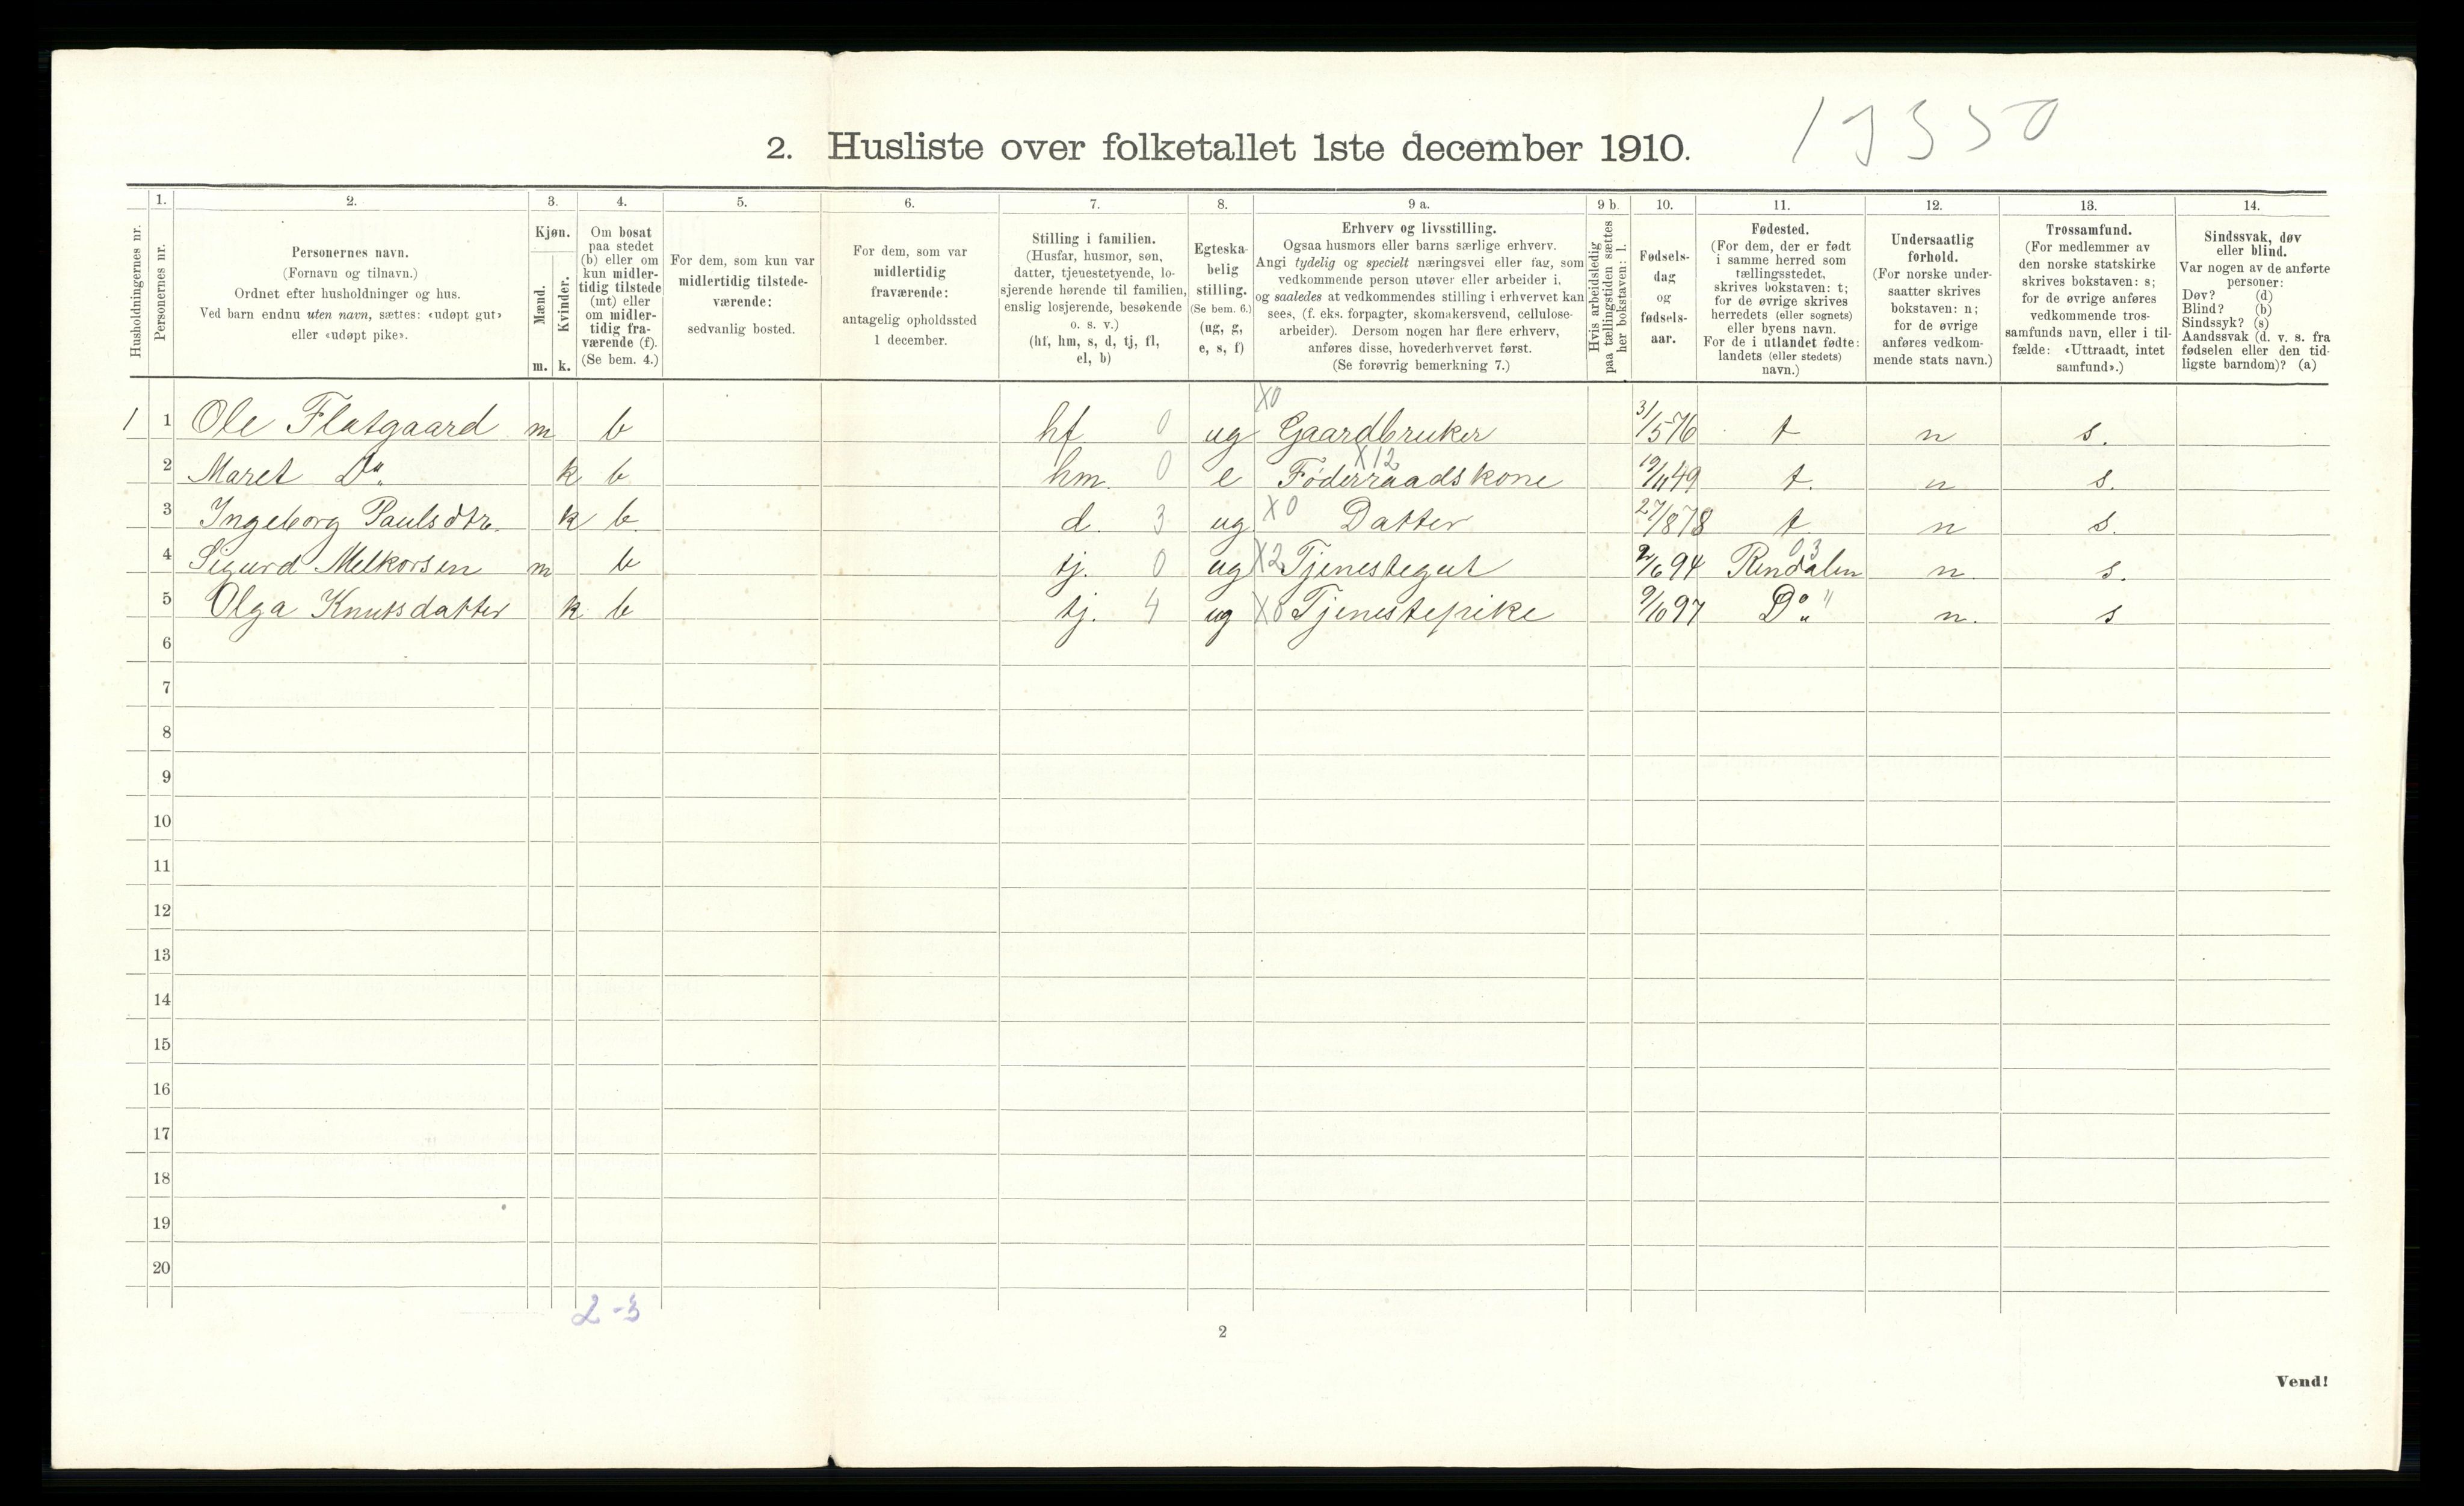 2. Husliste over folketallet 1ste december 1910.
Husholdningernes nr.
1. Personernes nr.
2. Personernes navn.
(Fornavn og tilnavn.)
Ordnet efter husholdninger og hus.
Ved barn endnu uten navn, sættes: «udøpt gut»
eller «udøpt pike».
3. Kjøn.
Mænd. m.
Kvinder. k.
4. Om bosat
paa stedet
(b) eller om
kun midler-
tidig tilstede
(mt) eller
om midler-
tidig fra-
værende (f).
(Se bem. 4.)
5. For dem, som kun var
midlertidig tilstede-
værende:
sedvanlig bosted.
6. For dem, som var
midlertidig
fraværende:
antagelig opholdssted
1 december.
7. Stilling i familien.
(Husfar, husmor, søn,
datter, tjenestetyende, lo-
sjerende hørende til familien,
enslig losjerende, besøkende
o. s. v.)
(hf, hm, s, d, tj, fl,
el, b)
8. Egteska-
belig
stilling.
(Se bem. 6.)
(ug, g,
e, s, f)
9 a. Erhverv og livsstilling.
Ogsaa husmors eller barns særlige erhverv.
Angi tydelig og specielt næringsvei eller fag, som
vedkommende person utøver eller arbeider i,
og saaledes at vedkommendes stilling i erhvervet kan
sees, (f. eks. forpagter, skomakersvend, cellulose-
arbeider). Dersom nogen har flere erhverv,
anføres disse, hovederhvervet først.
(Se forøvrig bemerkning 7.)
9 b. Hvis arbeidsledig
paa tællingstiden sættes
her bokstaven: l.
10. Fødsels-
dag
og
fødsels-
aar.
11. Fødested.
(For dem, der er født
i samme herred som
tællingsstedet,
skrives bokstaven: t;
for de øvrige skrives
herredets (eller sognets)
eller byens navn.
For de i utlandet fødte:
landets (eller stedets)
navn.)
12. Undersaatlig
forhold.
(For norske under-
saatter skrives
bokstaven: n;
for de øvrige
anføres vedkom-
mende stats navn.)
13. Trossamfund.
(For medlemmer av
den norske statskirke
skrives bokstaven: s;
for de øvrige anføres
vedkommende tros-
samfunds navn, eller i til-
fælde: «Uttraadt, intet
samfund».)
14. Sindssvak, døv
eller blind.
Var nogen av de anførte
personer:
Døv? (d)
Blind? (b)
Sindssyk? (s)
Aandssvak (d. v. s. fra
fødselen eller den tid-
ligste barndom)? (a)
1 1 Ole Flatgaard m b hf 0 ug X0 Gaardbruker 31/5 76 t n s.
2 Maret Do. k b hm. 0 e X12 Føderraadskone 19/11 49 t. n s.
3 Ingeborg Paulsdtr. k b d. 3 ug X0 Datter 27/8 78 t n s.
4 Sigurd Melkorsen m b tj. 0 ug X2 Tjenestegut 2/6 94 Rendalen 03 n. s.
5 Olga Knutsdatter k b tj. 4 ug Tjenestepike 9/10 97 Do " n. s
6
7
8
9
10
11
12
13
14
15
16
17
18
19
20
2-3
2
Vend!